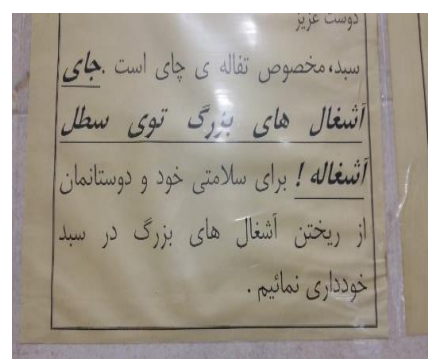 دوست عزیز
سبد، مخصوص تفاله ی چای است .جای
آشغال های بزرگ توی سطل
آشغاله ! برای سلامتی خود و دوستانمان
از ریختن آشغال های بزرگ در سبد
خودداری نمائیم .